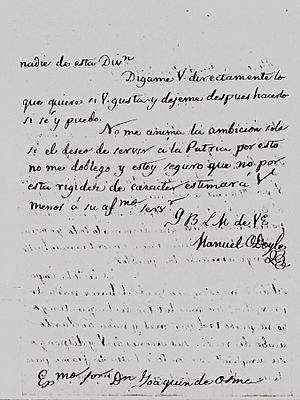 nadie de esta Divn
Digame V. directamente lo
que quiere si V. gusta y dejeme despues hacerlo
si sé y puedo.
No me anima la ambicion sola
si el deseo de servir a la Patria por esto
no me doblego y estoy seguro que no por
esta rigidez de caracter estimara V
menos á su afmo servr
Q B L M de VE
Manuel O,Doyle
Exmo Sor Dn Joaquin de Osma